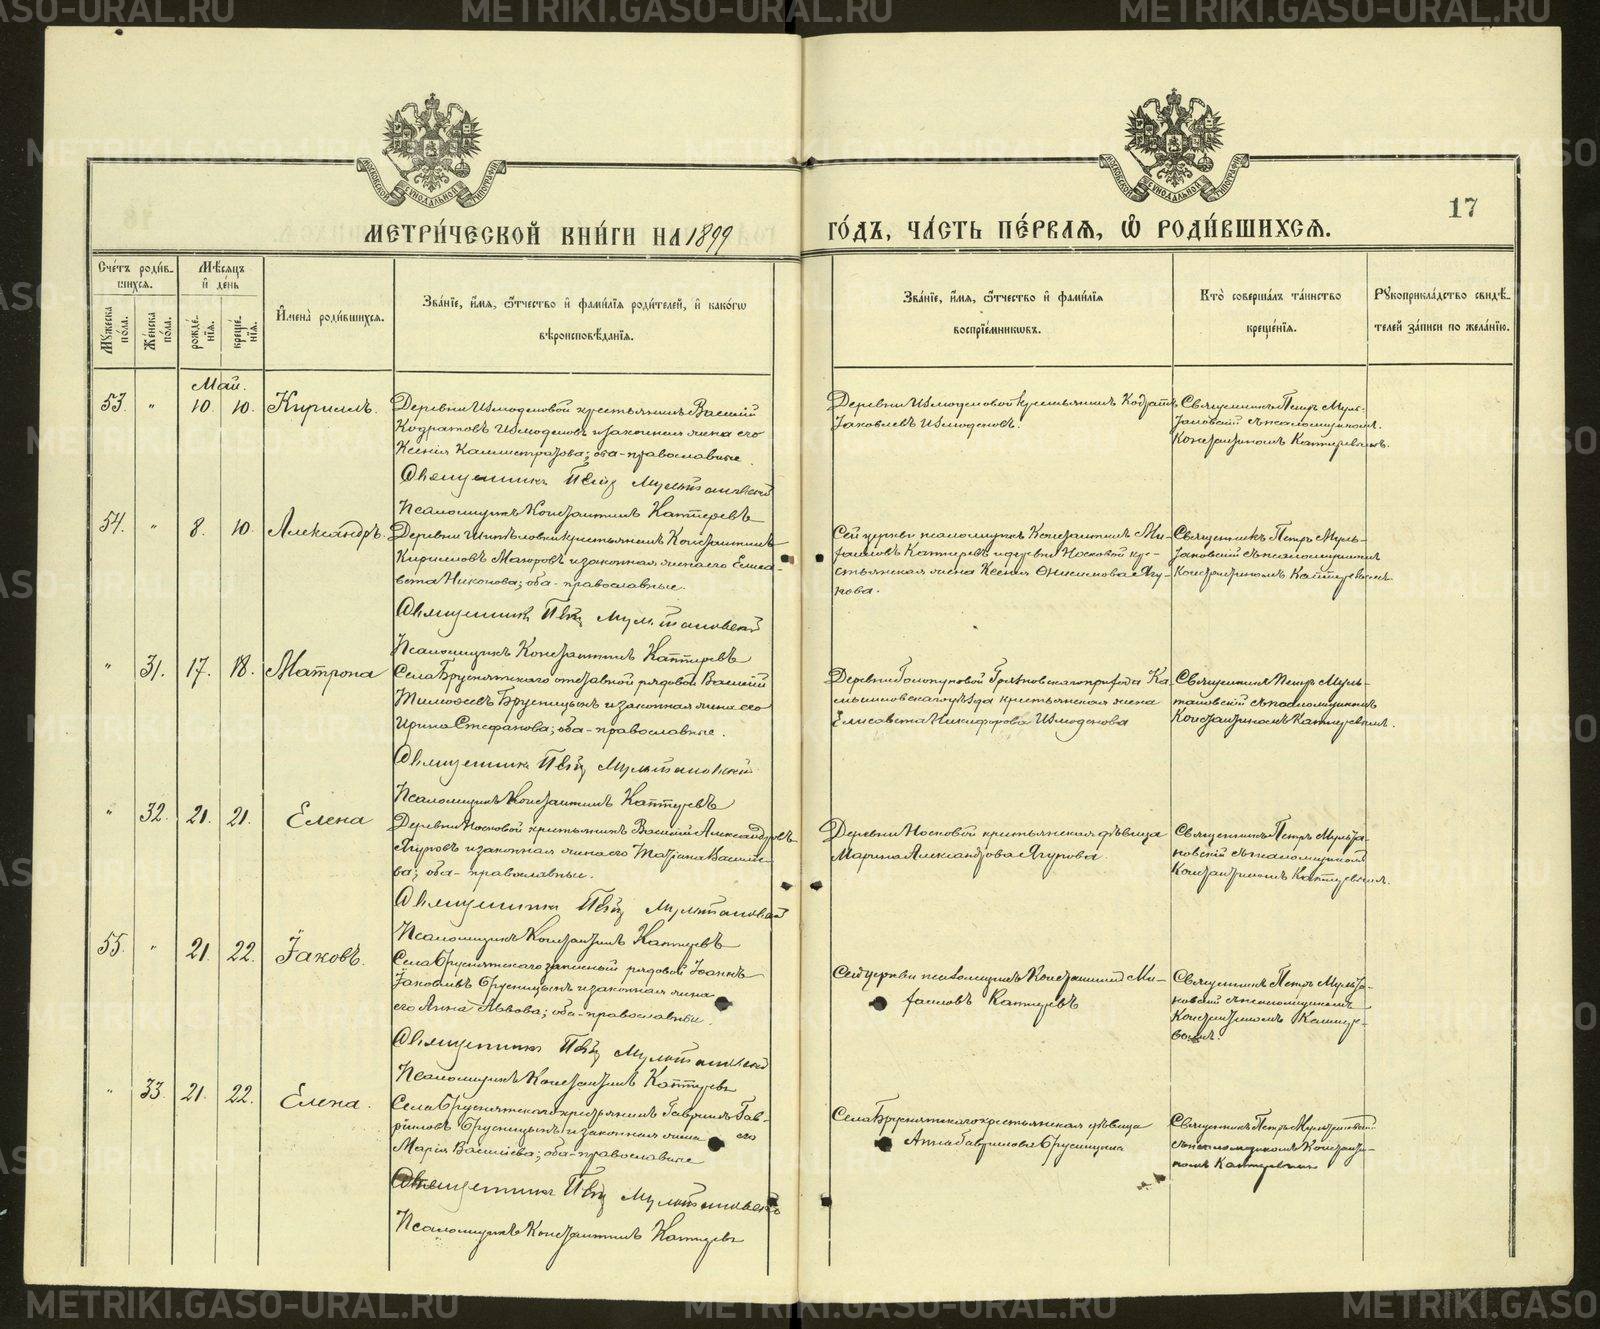 МЕТРИ́ЧЕСКОЙ КНИ́ГИ НА 1899 ГО́ДЪ, ЧА́СТЬ ПЕ́РВАЯ, Ѡ РОДИ́ВШИХСЯ.
17
Сче́тъ роди́в-
шихся.
Мꙋжеска по́ла.
Же́нска по́ла.
Мѣ́сяцъ и҆ де́нь
рожде́-нїя.
креще́-нїя.
И҆мена̀ роди́вшихся.
Зва́нїе, и҆́мя, ѻ҆́тчество и҆ фами́лїя роди́телей, и҆ како́гѡ
вѣроисповѣ́данїя.
Зва́нїе, и҆́мя, ѻ҆́тчество и҆ фами́лїя
воспрїе́мникѡвъ.
Кто̀ соверша́лъ та́инство
креще́нїя.
Рꙋкоприкла́дство свидѣ́-
телей за́писи по жела́нїю.
Май.
53. " 10. 10. Кириллъ.
Деревни Измоденовой крестьянинъ Василій
Кодратовъ Измоденовъ и законная жена его
Ксенія Каллистратова; оба-православные.
Священникъ Петръ Мультановскій
Псаломщикъ Константинъ Каптеревъ
Деревни Измоденовой крестьянинъ Кодратъ
Іаковлевъ Измоденовъ.
Священникъ Петръ Муль-
тановскій съ псаломщикомъ
Константиномъ Каптеревымъ.
54. " 8. 10. Александръ.
крестьянинъ Константинъ
Кирилловъ Мазуровъ и законная жена его Елиса-
вета Никонова; оба-православные.
Священникъ Петръ Мультановскій
Псаломщикъ Константинъ Каптеревъ
Сей церкви псаломщикъ Константинъ Ми-
хаиловъ Каптеревъ и деревни Носковой кре-
стьянская жена Ксенія Онисимова Ягу-
нова.
Священникъ Петръ Муль-
тановскій съ псаломщикомъ
Константиномъ Каптеревымъ.
" 31. 17. 18. Матрона
Села Бруснятскаго отставной рядовой Василій
Тимоѳеевъ Брусницынъ и законная жена его
Ирина Стефанова; оба-православные.
Священникъ Петръ Мультановскій
Псаломщикъ Константинъ Каптеревъ
Деревни Голопуповой Грязновскаго прихода Ка-
мышловскаго уѣзда крестьянская жена
Елисавета Никифорова Измоденова
Священникъ Петръ Муль-
тановскій съ псаломщикомъ
Константиномъ Каптеревымъ.
" 32. 21. 21. Елена
Деревни Носковой крестьянинъ Василій Александровъ
Ягуновъ и законная жена его Татіана Василье-
ва; оба-православные.
Священникъ Петръ Мультановскій
Псаломщикъ Константинъ Каптеревъ
Деревни Носковой крестьянская дѣвица
Марина Александрова Ягунова.
Священникъ Петръ Мульта-
новскій съ псаломщикомъ
Константиномъ Каптеревымъ.
55. " 21. 22. Іаковъ.
Села Бруснятскаго запасный рядовой Іоаннъ
Іаковлевъ Брусницынъ и законная жена
его Анна Львова; оба-православные.
Священникъ Петръ Мультановскій
Псаломщикъ Константинъ Каптеревъ
Сей церкви псаломщикъ Константинъ Ми-
хаиловъ Каптеревъ
Священникъ Петръ Мульта-
новскій съ псаломщикомъ
Константиномъ Каптере-
вымъ.
" 33. 21. 22. Елена.
Села Бруснятскаго крестьянинъ Гавріилъ Гав-
ріиловъ Брусницынъ и законная жена его
Марія Васильева; оба-православные
Священникъ Петръ Мультановскій
Псаломщикъ Константинъ Каптеревъ
Села Бруснятскаго крестьянская дѣвица
Анна Гавріилова Брусницына
Священникъ Петръ Мультановскій
съ псаломщикомъ Константи-
номъ Каптеревымъ
METRIKI.GASO-URAL.RU